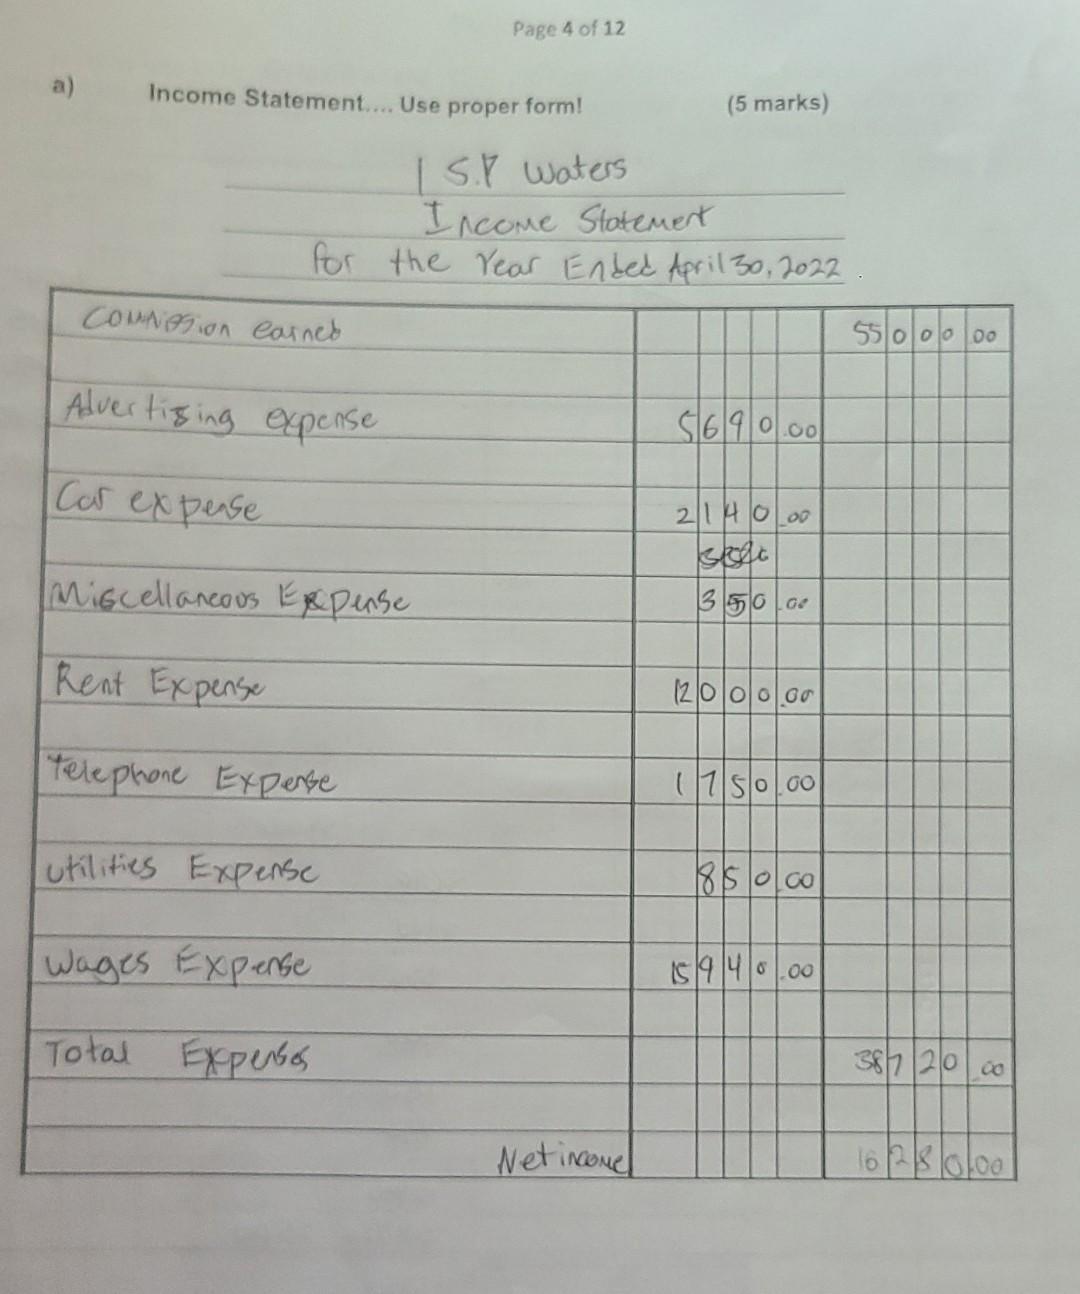 Page 4 of 12
a) Income Statement.... Use proper form! (5 marks)
I S.P Waters
Income Statement
for the Year Ended April 30, 2022
Commission earned 55000.00
Advertising expense 5690.00
Car expense 2140.00
Miscellaneous Expense 350.00
Rent Expense 12000.00
Telephone Expense 1750.00
Utilities Expense 850.00
Wages Expense 15940.00
Total Expenses 38720.00
Net income 16280.00